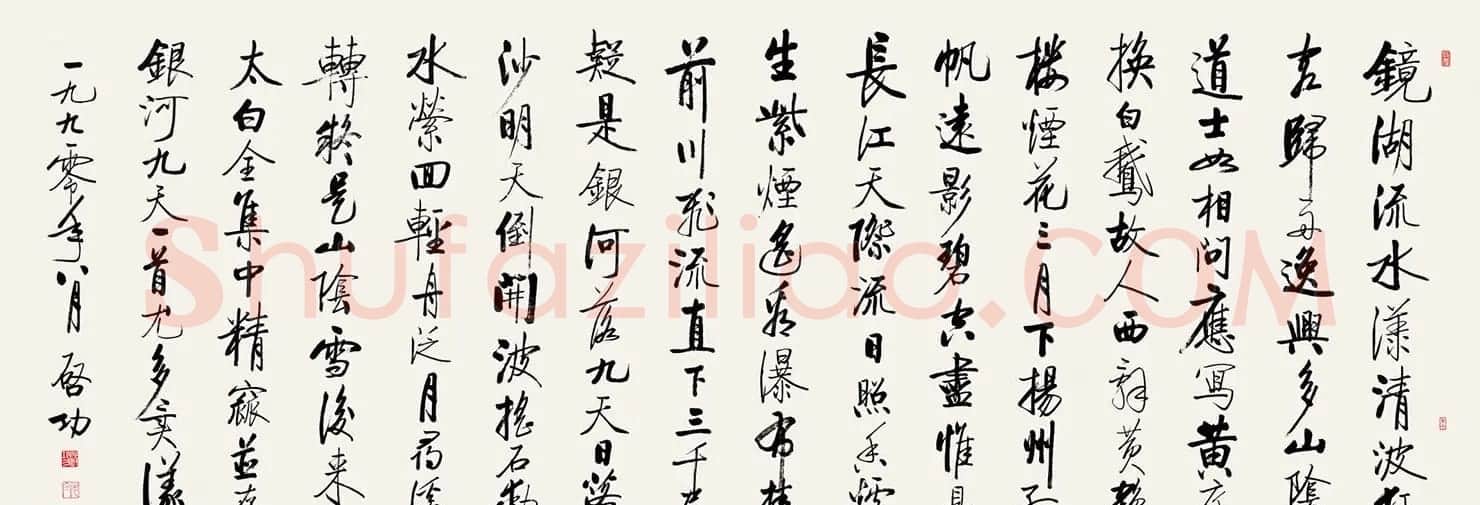 鏡湖流水漾清波狂
客歸舟逸興多山陰
道士如相問應寫黃庭
換白鵝故人西辭黃鶴
樓煙花三月下揚州孤
帆遠影碧空盡惟見
長江天際流日照香爐
生紫煙遙看瀑布掛
前川飛流直下三千尺
疑是銀河落九天日落
沙明天倒開波搖石動
水縈回輕舟泛月尋溪
轉疑是山陰雪後来
太白全集中精
銀河九天一首尤多
一九九零年八月 啓功
shufaziliao.COM